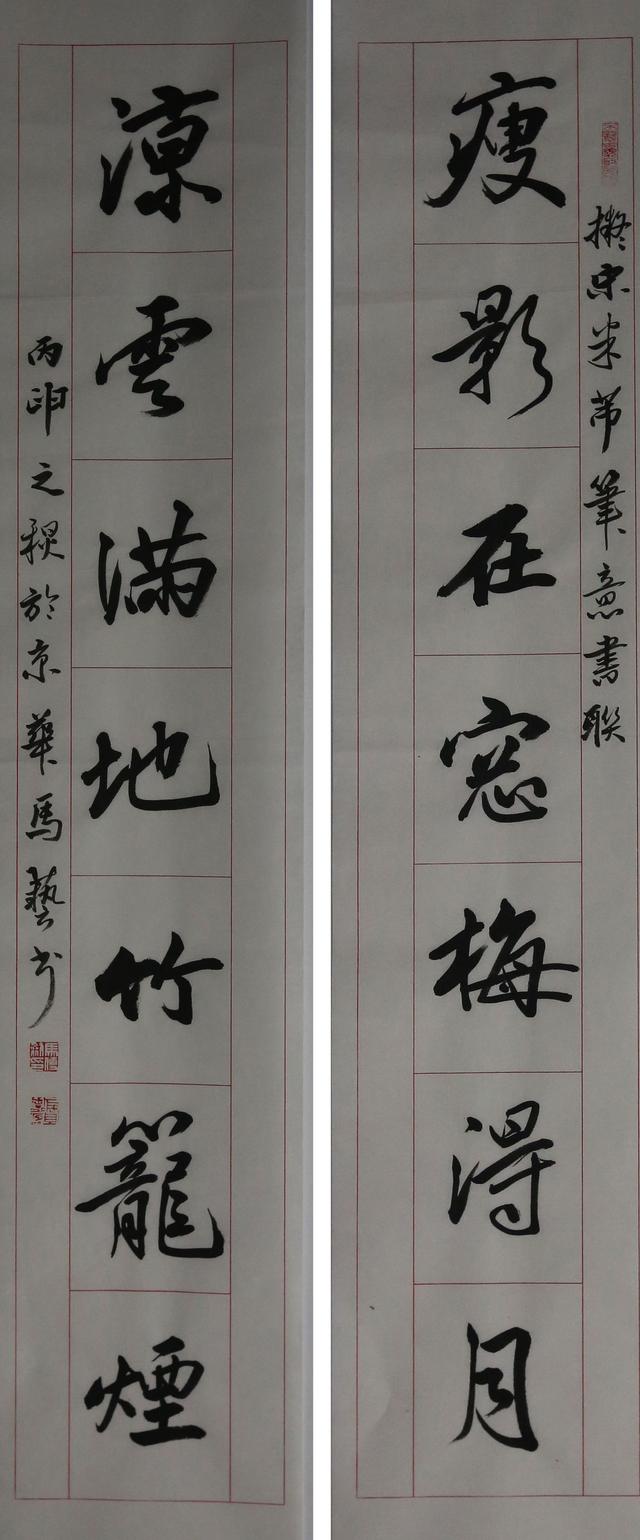 擬宋米芾筆意書聯
瘦影在窓梅得月
涼雲滿地竹籠煙
丙申之秋於京華馬藝书